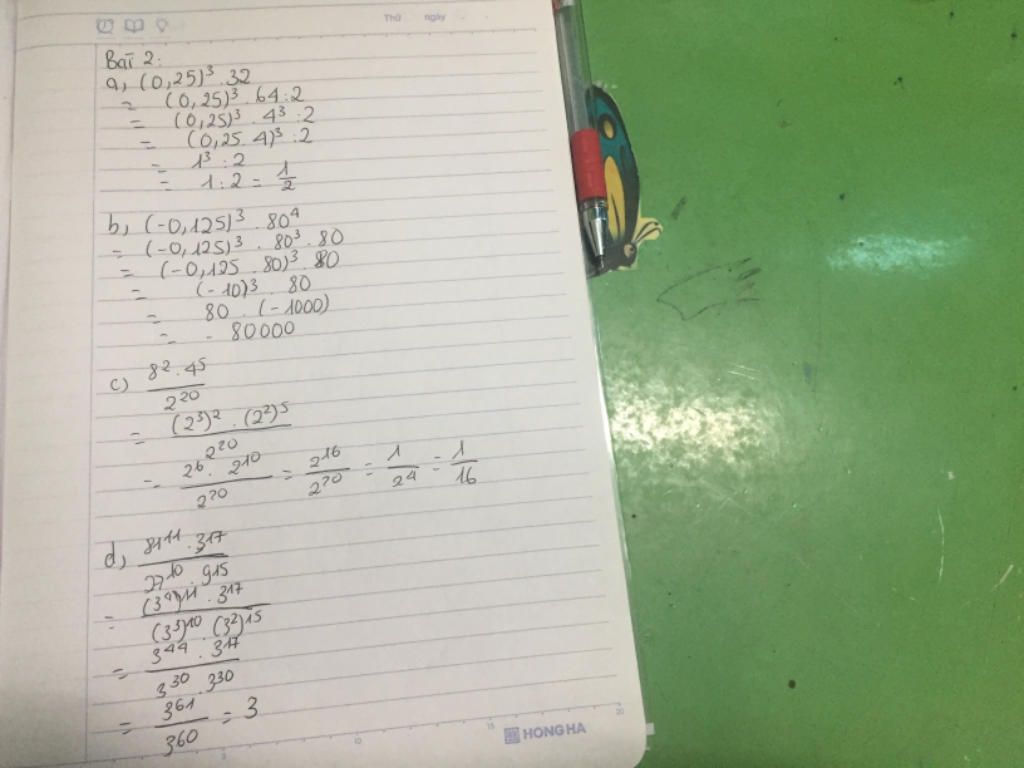 Thứ ngày
Bài 2:
a, (0,25)³ . 32
= (0,25)³ . 64 : 2
= (0,25)³ . 4³ : 2
= (0,25 . 4)³ : 2
= 1³ : 2
= 1 : 2 = 1/2
b, (-0,125)³ . 80⁴
= (-0,125)³ . 80³ . 80
= (-0,125 . 80)³ . 80
= (-10)³ . 80
= 80 . (-1000)
= - 80000
c) 8² . 4⁵ / 2²⁰
= (2³)² . (2²)⁵ / 2²⁰
= 2⁶ . 2¹⁰ / 2²⁰ = 2¹⁶ / 2²⁰ = 1 / 2⁴ = 1 / 16
d, 81¹¹ . 3¹⁷ / 27¹⁰ . 9¹⁵
= (3⁴)¹¹ . 3¹⁷ / (3³)¹⁰ . (3²)¹⁵
= 3⁴⁴ . 3¹⁷ / 3³⁰ . 3³⁰
= 3⁶¹ / 3⁶⁰ = 3
5 10 15 20
HONG HA